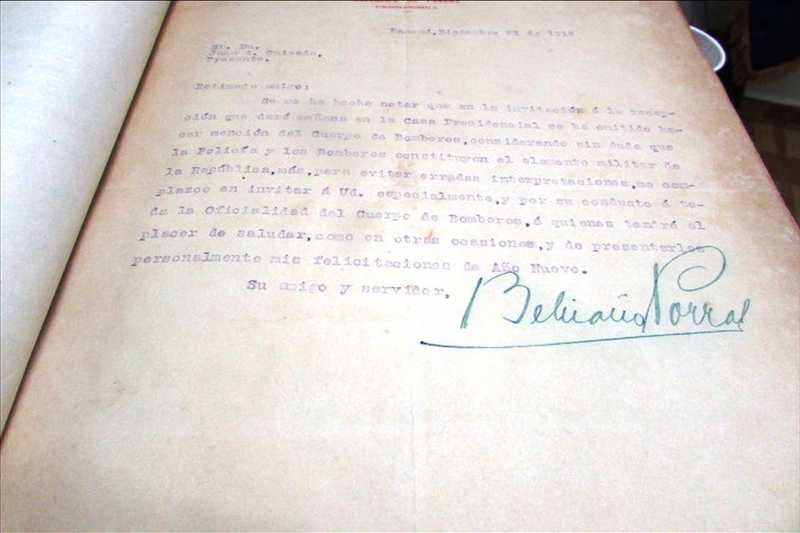 Panamá, Diciembre 31 de 191
Sr. Dn.
Juan A. Guizado.
Presente.
Estimado amigo:
Se me ha hecho notar que en la invitación á la recep-
ción que daré mañana en la Casa Presidencial se ha omitido ha-
cer mención del Cuerpo de Bomberos, considerando sin duda que
la Policía y los Bomberos constituyen el elemento militar de
la República, más, para evitar erradas interpretaciones, me com-
plazco en invitar á Ud. especialmente, y por su conducto á to-
da la Oficialidad del Cuerpo de Bomberos, á quienes tendré el
placer de saludar, como en otras ocasiones, y de presentarles
personalmente mis felicitaciones de Año Nuevo.
Su amigo y servidor,
Belisario Porras